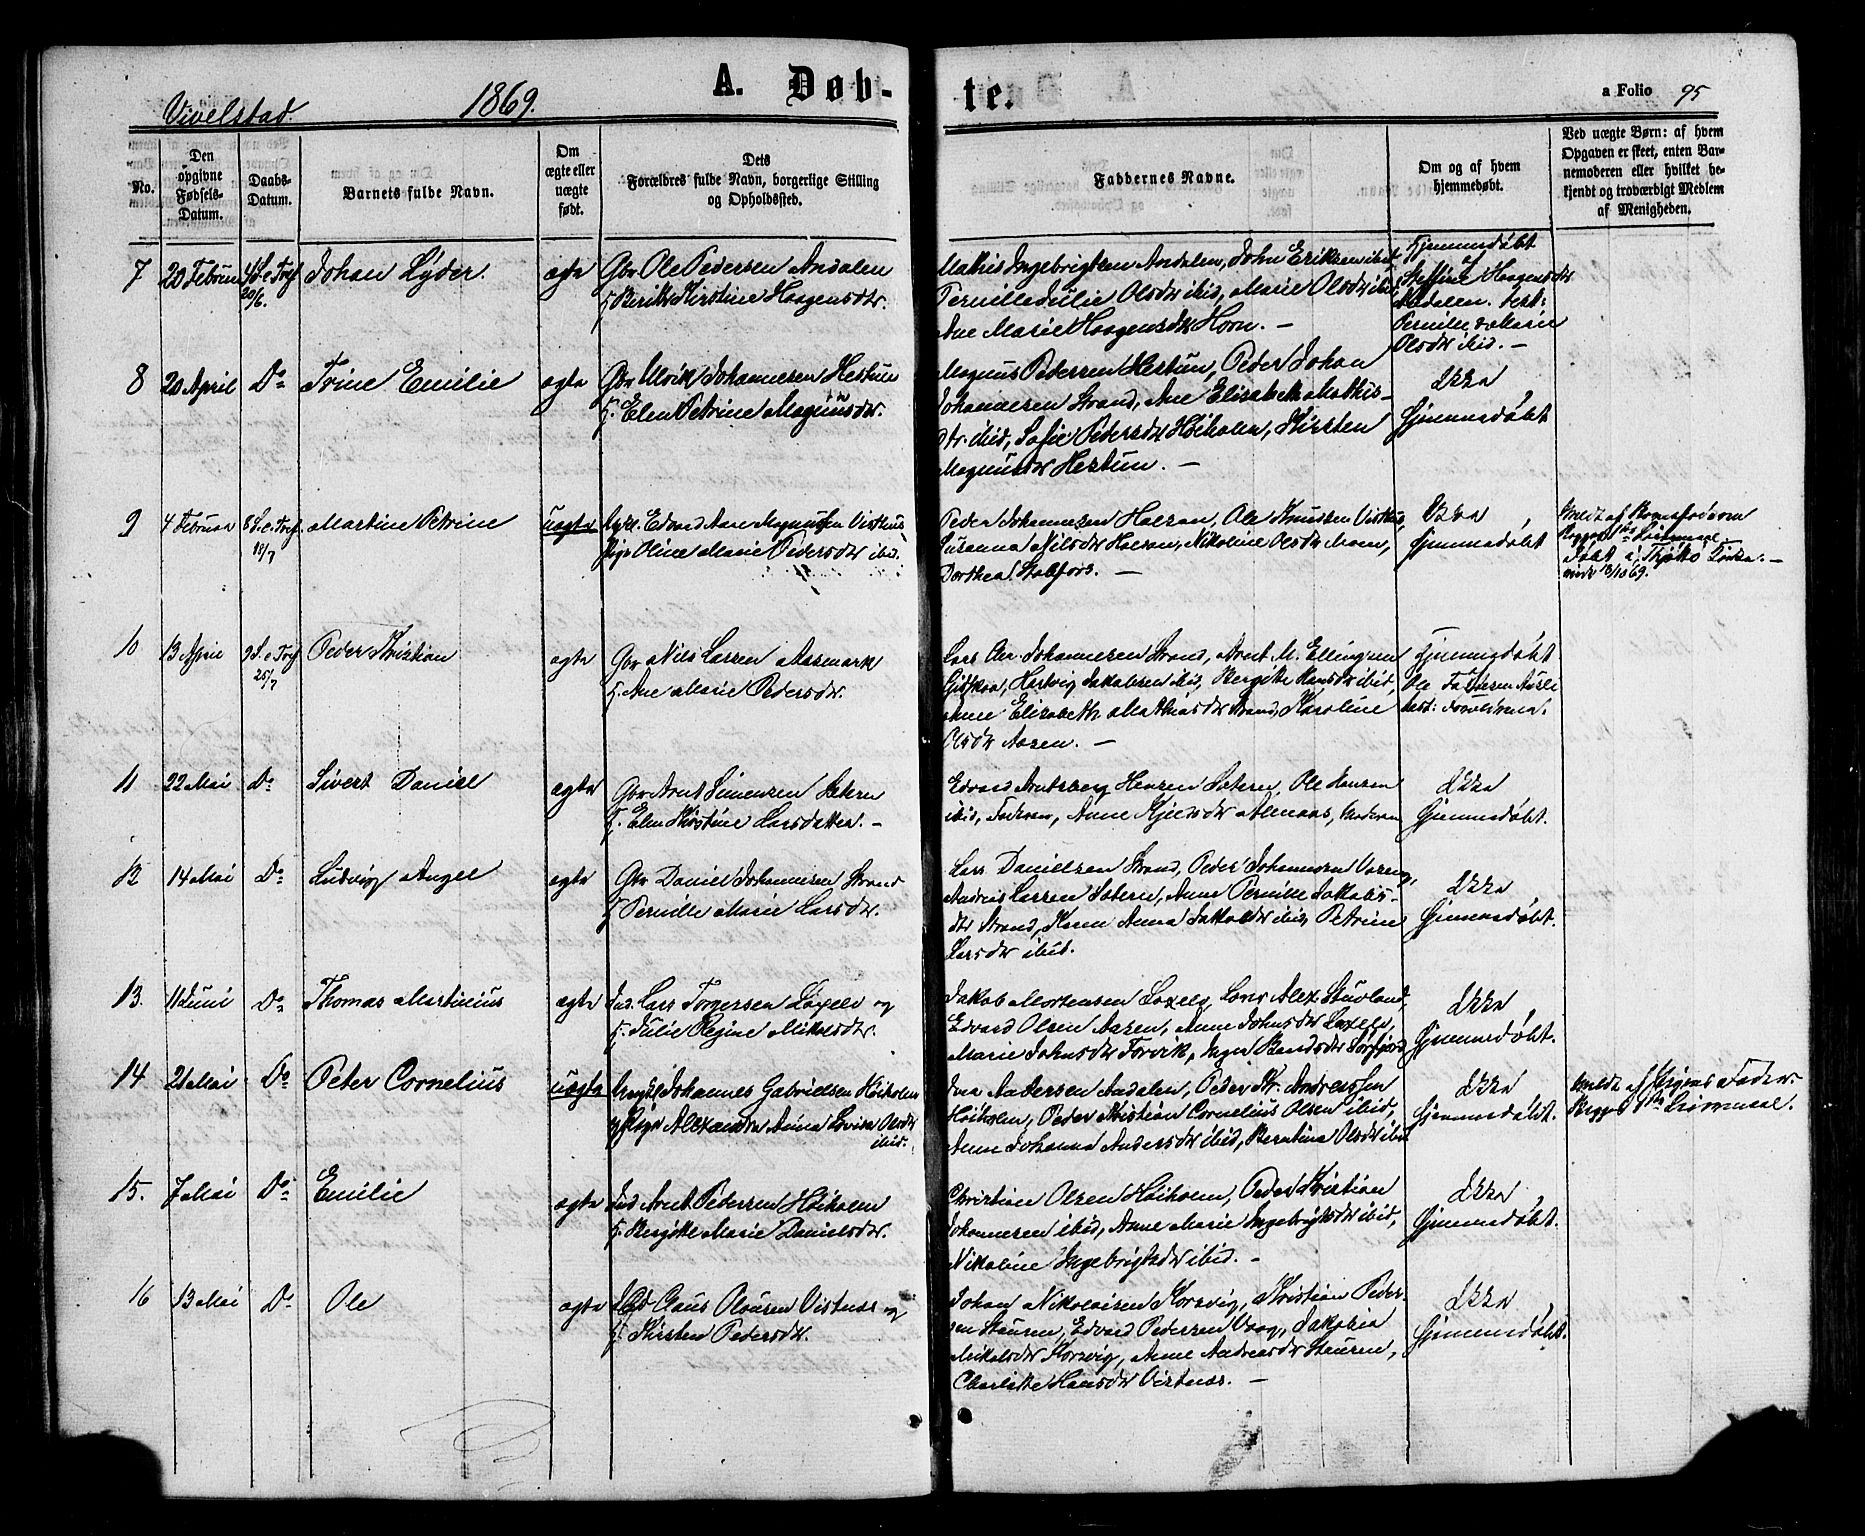 Vivelstad. 1869. A. Døb- te. a Folio 95
No.
Den opgivne Fødsels-Datum.
Daabs-Datum.
Barnets fulde Navn.
Om ægte eller uægte født.
Dets Forældres fulde Navn, borgerlige Stilling og Opholdssted.
Faddernes Navne.
Om og af hvem hjemmedøbt.
Ved uægte Børn: af hvem Opgaven er skeet, enten Barnemoderen eller hvilket bekjendt og troværdigt Medlem af Menigheden.
7 20 Februar 4 S. e. Tref. 20/6. Johan Lyder. ægte Gbr Ole Pedersen Andalen
K Kirstine Haagensdtr.
Mathis Ingebrigtsen Andalen, John Eriksen ibid,
Pernille Julie Olsdtr ibid, Marie Olsdtr ibid,
Ane Marie Haagensdtr Horn. —
Hjemmedøbt
af
Haagensdtr
Andalen. test:
Pernille & Marie
Olsdtr ibid. —
8 20 April Do Trine Emilie ægte Gbr Ulrik Johannesen Hestun
K. Elen Petrine Magnusdtr.
Magnus Pedersen Hestun, Peder Johan
Johannesen Strand, Ane Elisabeth Mathis-
dtr ibid, Sofie Pedersdtr Høiholm, Kirsten
Magnusdtr Hestun. —
Ikke
hjemmedøbt
9 4 Februar 8 S. e. Tref. 18/7 Martine Petrine uægte Ungkl. Edvard Magnussen Visthus
Pige Oline Marie Pedersdtr ibid.
Peder Johannesen Ole Knudsen Visthus,
Susanna Nilsdtr Nikoline Olsdtr Moen,
Dorthea Stabfors. —
Ikke
hjemmedøbt
Meldt af Barnefaderen
Døbt i Tjøttø
18/7 1869.
10 13 April 9 S. e. Tref 25/7 Peder Kristian ægte Gbr Nils Larsen Aasmark
K. Ane Marie Pedersdtr.
Lars Chr. Johannesen Strand, Arnt M. Ellingsen
Hartvig Jakobsen ibid, Bergitte Hansdtr ibid,
Anne Elisabeth Mathiasdtr Strand, Karoline
Olsdtr Aasen. —
Hjemmedøbt
Ole
test: Forældrene.
11 22 Mai Do Sivert Daniel ægte Gbr Arnt Simonsen Sætern
K. Elen Kirstine Larsdatter. —
Edvard Arntsberg Hensen Sætern, Ole Hansen
ibid, Faderen, Anne Moderen
Ikke
hjemmedøbt.
12 14 Mai Do Ludvig Angel ægte Gbr Daniel Johannesen Strand
K Pernille Marie Larsdtr.
Lars Danielsen Strand, Peder Johannesen
Andreas Larsen Sætern, Anne Pernille Jakobs-
dtr Strand, Karen Anna Jakobsdtr ibid, Petrine
Larsdtr ibid.
Ikke
hjemmedøbt.
13. 11 Juni Do Thomas Martinius ægte Ind. Lars Torgersen og
K. Julie Regine Mikalsdtr.
Jakob Mortensen Lars Alex. Stuvland,
Edvard Olsen Aasen, Anne Johnsdtr
Marie Johnsdtr Forvik, Inger Bendsdtr Sørfjord
Ikke
hjemmedøbt.
14 21 Mai Do Peter Cornelius uægte Ungkl Johannes Gabrielsen Høiholm
& Pige Alexandra Anna Lovise Olsdtr
ibid.
Andersen Andalen, Peder Kr. Andersen
Høiholm, Peder Kristian Cornelius Olsen ibid,
Anne Johanna Andersdtr ibid, Berntina Olsdtr ibid
Ikke
hjemmedøbt.
Meldt af Pigens Fader.
15. 7 Mai Do Emilie ægte Ind Arnt Pedersen Høiholm
K. Bergitte Marie Danielsdtr.
Christian Olsen Høiholm, Peder Kristian
Johannesen ibid, Anne Marie Ingebrigtsdtr ibid,
Nikoline Ingebrigtsdtr ibid. —
Ikke
hjemmedøbt.
16 13 Mai Do Ole ægte Claus Olausen Vistnæs og
K. Kirsten Pedersdtr.
Johan Nikolaisen Korsvig, Kristian Peder-
sen Edvard Pedersen Vaag, Jakobia
Mikalsdtr Korsvig, Anne Andreasdtr
Charlotte Hansdtr Vistnæs. —
Ikke
hjemmedøbt.